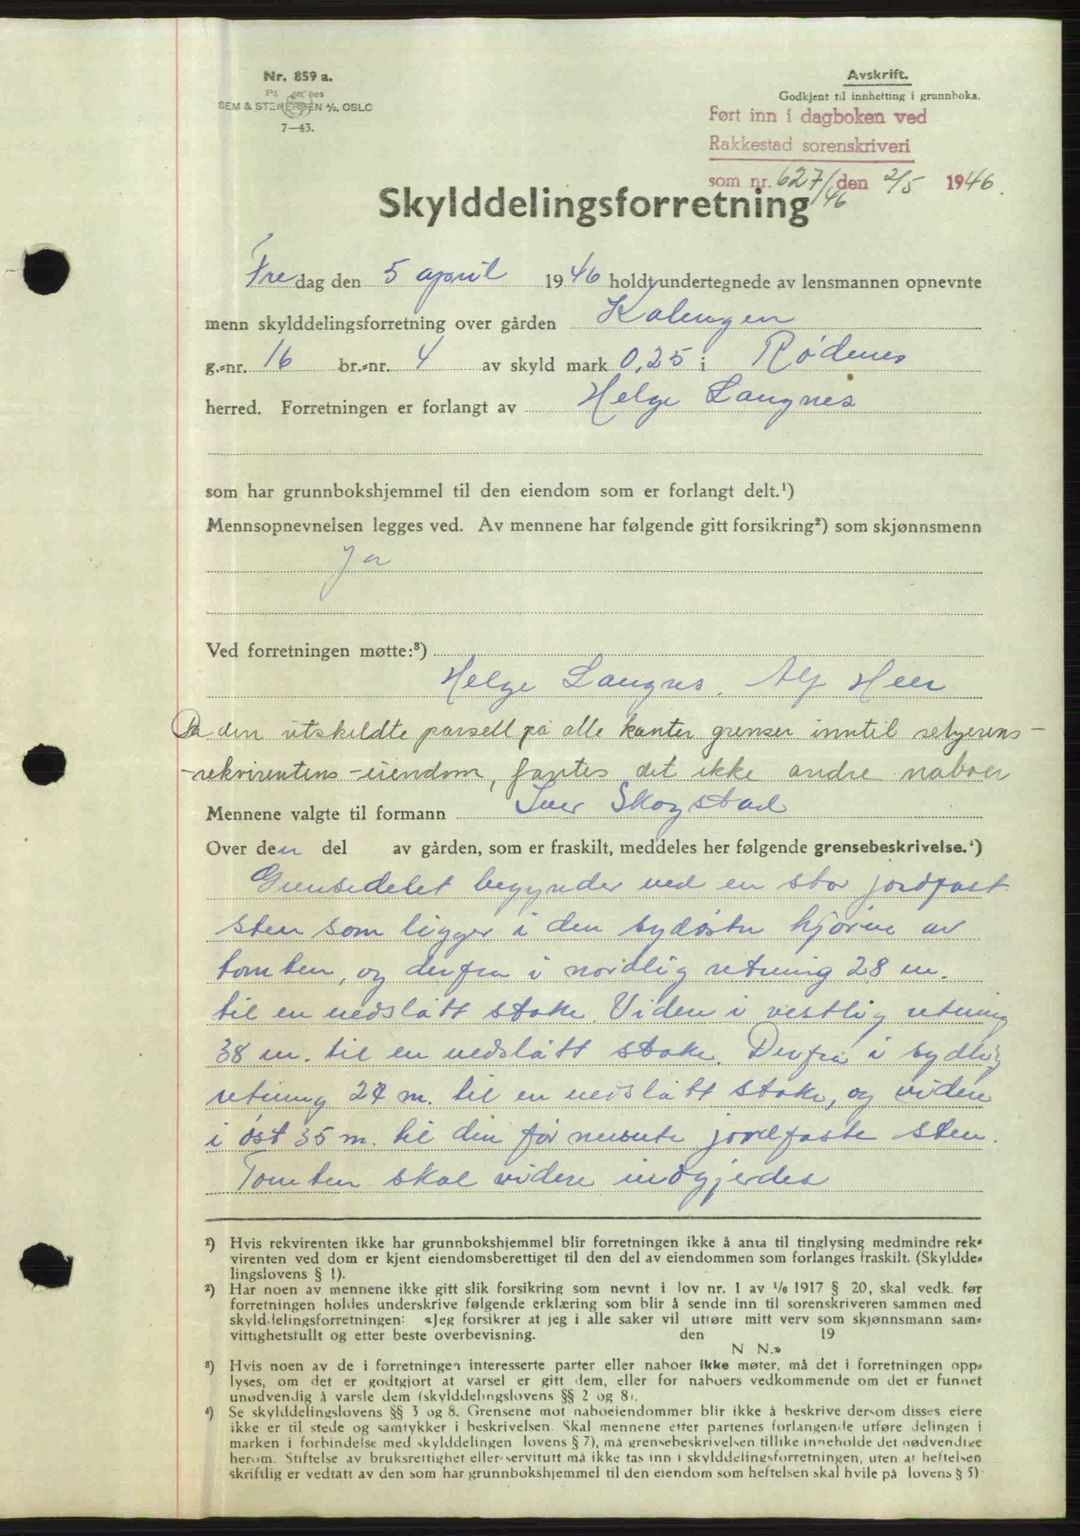 Nr. 859 a.
SEM & STENERSEN A/S, OSLO
7—43.
Avskrift.
Godkjent til innhefting i grunnboka.
Ført inn i dagboken ved
Rakkestad sorenskriveri
som nr. 627/46 den 2/5 1946.
Skylddelingsforretning
Fredag den 5 april 1946 holdt undertegnede av lensmannen opnevnte
menn skylddelingsforretning over gården Kalengen
g.=nr. 16 br.=nr. 4 av skyld mark 0,25 i Rødenes
herred. Forretningen er forlangt av Helge Langnes
som har grunnbokshjemmel til den eiendom som er forlangt delt.¹)
Mennsopnevnelsen legges ved. Av mennene har følgende gitt forsikring²) som skjønnsmenn
Ja
Ved forretningen møtte:³)
Helge Langnes, Alf Heer
Da den utskeldte parsell på alle kanter grenser inntil selgerens-
-rekvirentens -eiendom, fantes det ikke andre naboer
Mennene valgte til formann Iver Skogstad
Over den del av gården, som er fraskilt, meddeles her følgende grensebeskrivelse.⁴)
Grensedelet begynder ved en stor jordfast
sten som ligger i den sydøstre hjørne av
tomten, og derfra i nordlig retning 28 m.
til en nedslått stake. Videre i vestlig retning
38 m. til en nedslått stake. Derfra i sydlig
retning 24 m. til en nedslått stake, og videre
i øst 35 m. til den før nevnte jordfaste sten.
Tomten skal videre indgjerdes
¹) Hvis rekvirenten ikke har grunnbokshjemmel blir forretningen ikke å anta til tinglysing medmindre rek=
virenten ved dom er kjent eiendomsberettiget til den del av eiendommen som forlanges fraskilt. (Skyldde=
lingslovens § 1).
²) Har noen av mennene ikke gitt slik forsikring som nevnt i lov nr. 1 av 1/6 1917 § 20, skal vedk. før
forretningen holdes underskrive følgende erklæring som blir å sende inn til sorenskriveren sammen med
skylddelingsforretningen: «Jeg forsikrer at jeg i alle saker vil utføre mitt verv som skjønnsmann sam=
vittighetsfullt og etter beste overbevisning. den 19
N N.»
³) Hvis noen av de i forretningen interesserte parter eller naboer ikke møter, må det i forretningen opp=
lyses, om det er godtgjort at varsel er gitt dem, eller for naboers vedkommende om det er funnet
unødvendig å varsle dem (skylddelingslovens §§ 2 og 8).
⁴) Se skylddelingslovens §§ 3 og 8. Grensene mot naboeiendommer blir ikke å beskrive dersom disses eiere
ikke er til stede og samtykker i beskrivelsen. Skal mennene etter partenes forlangende utføre delingen i
marken i forbindelse med skylddelingen lovens § 7), må grensebeskrivelsen tillike inneholde det nødvendige
herom. Stiftelse av bruksrettighet eller servitutt må ikke tas inn i skylddelingsforretningen, uten at heftelsen
skriftlig er vedtatt av den som har grunnbokshjemmel til den eiendom som heftelsen skal hvile på lovens § 5)